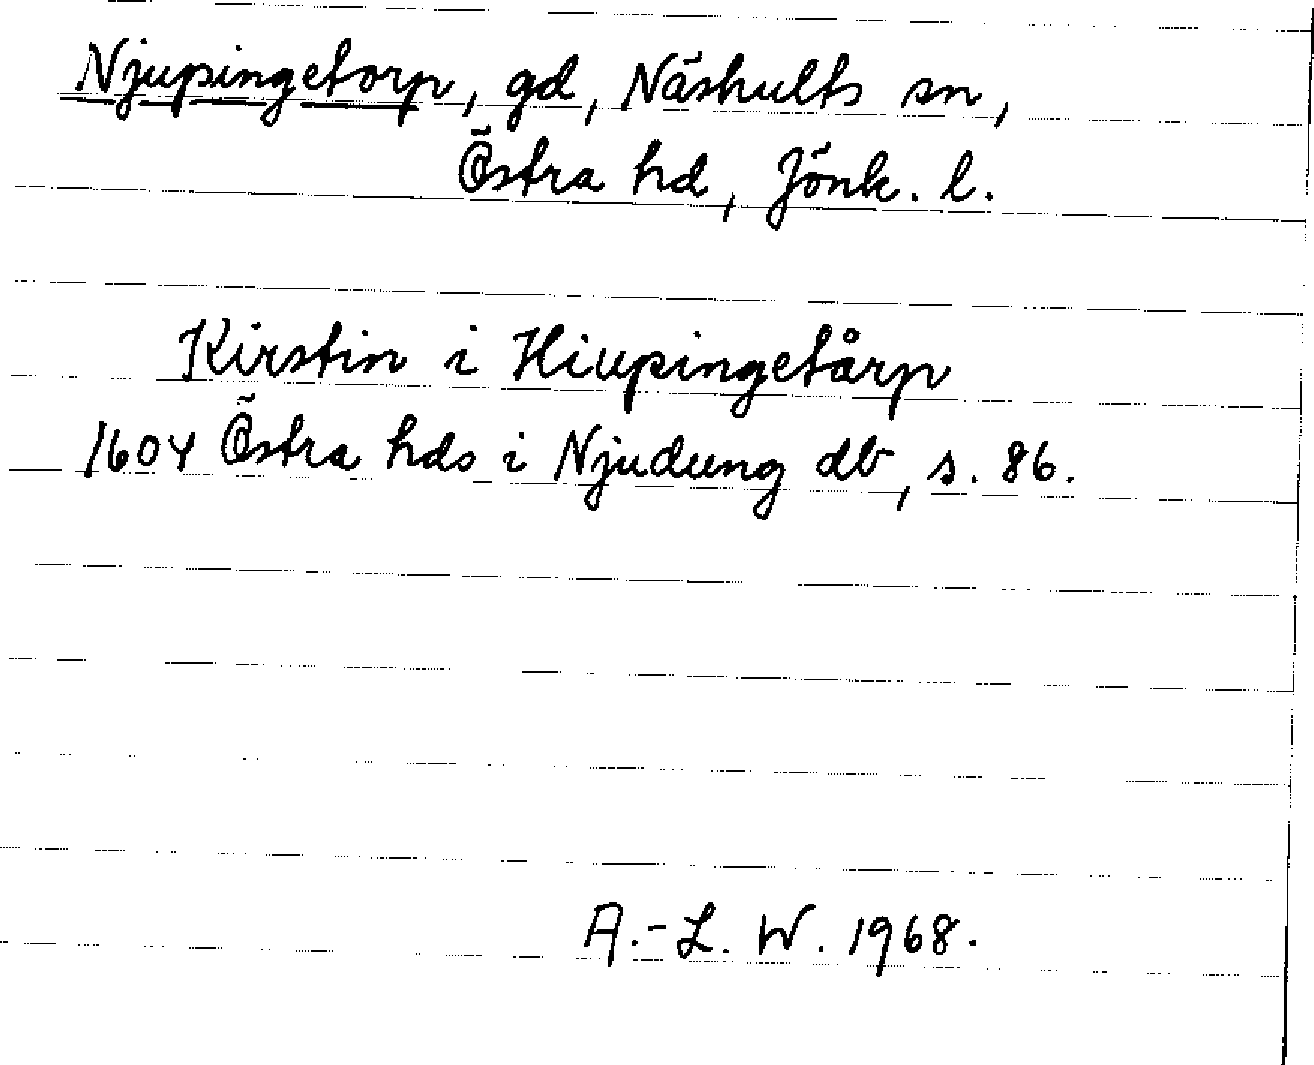 Njupingetorp, gd, Näshults sn,
Östra hd, Jönk. l.
Kirstin i Hiupingetårp
1604 Östra hds i Njudung db, s. 86.
A.-L. W. 1968.